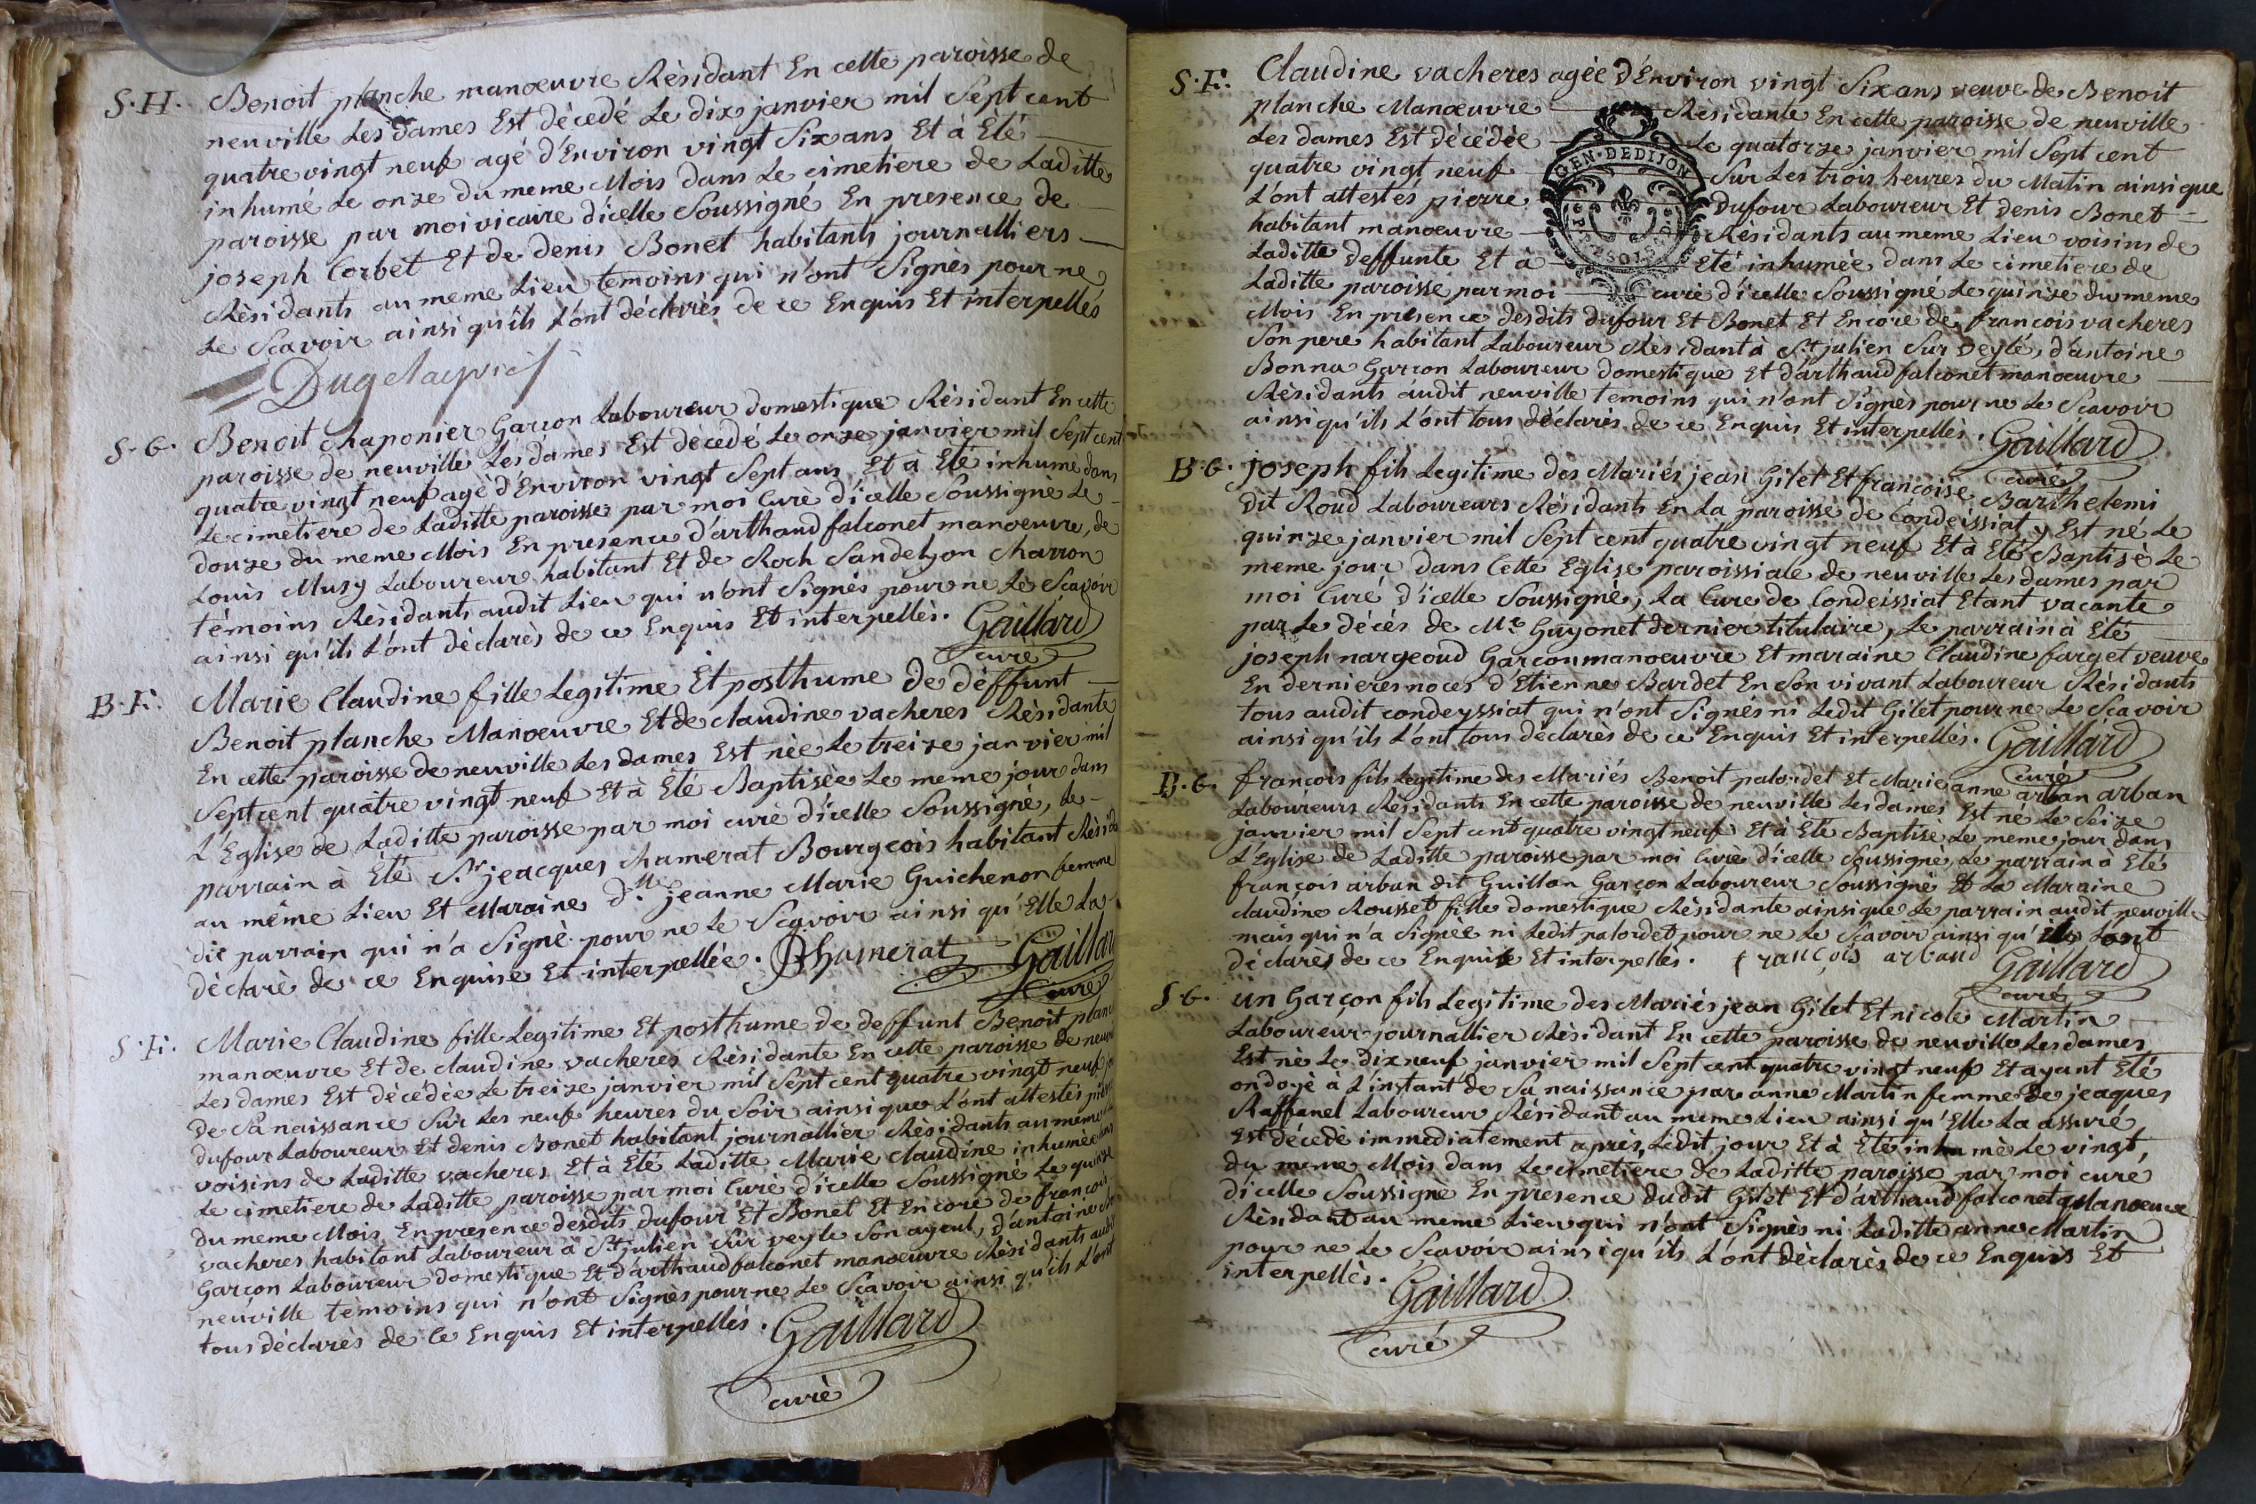 S. H. Benoit planche manoeuvre Résidant En cette paroisse de
neuville Les dames Est décedé Le dix janvier mil Sept cent
quatre vingt neuf agé d'Environ vingt Six ans Et à Eté
inhumé Le onze du meme Mois dans Le cimetiere de Laditte
paroisse par moi vicaire d'icelle Soussigné En presence de
joseph Corbet Et de denis Bonet habitants journalliers
Résidants au meme Lieu temoins qui n'ont Signés pour ne
Le Scavoir ainsi qu'ils L'ont déclarés de ce Enquis Et interpellés
S. G. Benoit chaponier Garçon Laboureur domestique Résidant En cette
paroisse de neuville Les dames Est décedé Le onze janvier mil Sept cent
quatre vingt neuf agé d'Environ vingt Sept ans Et à Eté inhumé dans
Le cimetiere de Laditte paroisse par moi Curé d'icelle Soussigné Le
douze du meme Mois En presence d'arthaud falconet manoeuvre, de
Louis Musy Laboureur habitant Et de Roch Sandelyon charron
témoins Résidants audit Lieu qui n'ont Signés pour ne Le Scavoir
ainsi qu'ils L'ont déclarés de ce Enquis Et interpellés. Gaillard
curé
B. F. Marie Claudine fille Legitime Et posthume de deffunt
Benoit planche Manoeuvre Et de claudine vacheres Résidante
En cette paroisse de neuville Les dames Est née Le treize janvier mil
Sept cent quatre vingt neuf Et à Eté Baptisée Le meme jour dans
L'Eglise de Laditte paroisse par moi curé d'icelle Soussigné, Le
parrain à Eté Sr. jeacques chamerat Bourgeois habitant Résid
au même Lieu Et Maraine dlle. jeanne Marie Guichenon femme
dit parrain qui n'a Signé pour ne le Scavoir ainsi qu'Elle La
déclaré de ce Enquise Et interpellée. Chamerat Gaillar
curé
S. F. Marie Claudine fille Legitime Et posthume de deffunt Benoit planc
manoeuvre Et de claudine vacheres Résidante En cette paroisse de neuvi
Les dames Est décédée Le treize janvier mil Sept cent quatre vingt neuf jo
de Sa naissance Sur Les neuf heures du Soir ainsi que L'ont attestés pierr
dufour Laboureur Et denis Bonet habitant journallier Résidants au même
voisins de Laditte vacheres Et à Eté Laditte Marie claudine inhumée dans
Le cimetiere de Laditte paroisse par moi Curé d'icelle Soussigné Le quinze
du meme Mois En presence desdits dufour Et Bonet Et Encore de françois
vacheres habitant Laboureur à St julien Sur veyle Son ayeul, d'antoine
Garçon Laboureur domestique Et d'arthaud falconet manoeuvre Résidants aud
neuville temoins qui n'ont Signés pour ne Le Scavoir ainsi qu'ils L'ont
tous déclarés de Ce Enquis Et interpellés. Gaillard
curé
S. F. Claudine vacheres agée d'Environ vingt Six ans veuve de Benoit
planche Manoeuvre Résidante En cette paroisse de neuville
Les dames Est décédée Le quatorze janvier mil Sept cent
quatre vingt neuf Sur Les trois heures du Matin ainsi que
L'ont attestés pierre dufour Laboureur Et denis Bonet
habitant manoeuvre Résidants au meme Lieu voisins de
Laditte deffunte Et à Eté inhumée dans Le cimetiere de
Laditte paroisse par moi curé d'icelle Soussigné Le quinze du meme
GEN. DE DIJON
Mois En presence desdits dufour Et Bonet Et Encore de françois vacheres
Son pere habitant Laboureur Résidant à St julien Sur veyle, d'antoine
Bonna Garçon Laboureur domestique Et d'arthaud falconet manoeuvre
Résidants audit neuville temoins qui n'ont Signés pour ne Le Scavoir
ainsi qu'ils L'ont tous déclarés de ce Enquis Et interpellés. Gaillard
curé
B. G. joseph fils Legitime des Mariés jean Gilet Et françoise Barthelemi
dit Roud Laboureurs Résidants En La paroisse de Condeissiat y Est né Le
quinze janvier mil Sept cent quatre vingt neuf Et à Eté Baptisé Le
meme jour dans Cette Eglise paroissiale de neuville Les dames par
moi Curé d'icelle Soussigné, La Cure de Condeissiat Etant vacante
par Le décés de Mre Guyonet dernier titulaire, Le parrain à Eté
joseph nargeoud Garçon manoeuvre Et maraine Claudine farget veuve
En dernieres noces d'Etienne Bardet En Son vivant Laboureur Résidants
tous audit condeyssiat qui n'ont Signés ni Ledit Gilet pour ne Le Scavoir
ainsi qu'ils L'ont tous déclarés de ce Enquis Et interpellés. Gaillard
curé
B. G. françois fils Legitime des Mariés Benoit palordet Et Marie anne arban arban
Laboureurs Résidants En cette paroisse de neuville Les dames Est né Le Seize
janvier mil Sept cent quatre vingt neuf Et à Eté Baptisé Le meme jour dans
L'Eglise de Laditte paroisse par moi Curé d'icelle Soussigné, Le parrain à Eté
françois arban dit Guillon Garçon Laboureur Soussigné Et La Maraine
claudine Rousset fille domestique Résidante ainsi que Le parrain audit neuville
mais qui n'a Signée ni Ledit palordet pour ne Le Scavoir ainsi qu'ils L'ont
déclarés de ce Enquis Et interpellés. françois arband Gaillard
curé
S G. un Garçon fils Legitime des Mariés jean Gilet Et nicole Martin
Laboureur journallier Résidant En cette paroisse de neuville Les dames
Est né Le dix neuf janvier mil Sept cent quatre vingt neuf Et ayant Eté
ondoyé à L'instant de Sa naissance par anne Martin femme de jeaques
Raffanel Laboureur Résidant au meme Lieu ainsi qu'Elle La assuré
Est décédé immediatement après, Ledit jour Et à Eté inhumé Le vingt,
du meme Mois dans Le cimetiere de Laditte paroisse par moi curé
d'icelle Soussigné En presence dudit Gilet Et d'arthaud falconet Manoeuvre
Résidant au meme Lieu qui n'ont Signés ni Laditte anne Martin
pour ne Le Scavoir ainsi qu'ils L'ont déclarés de ce Enquis Et
interpellés. Gaillard
curé